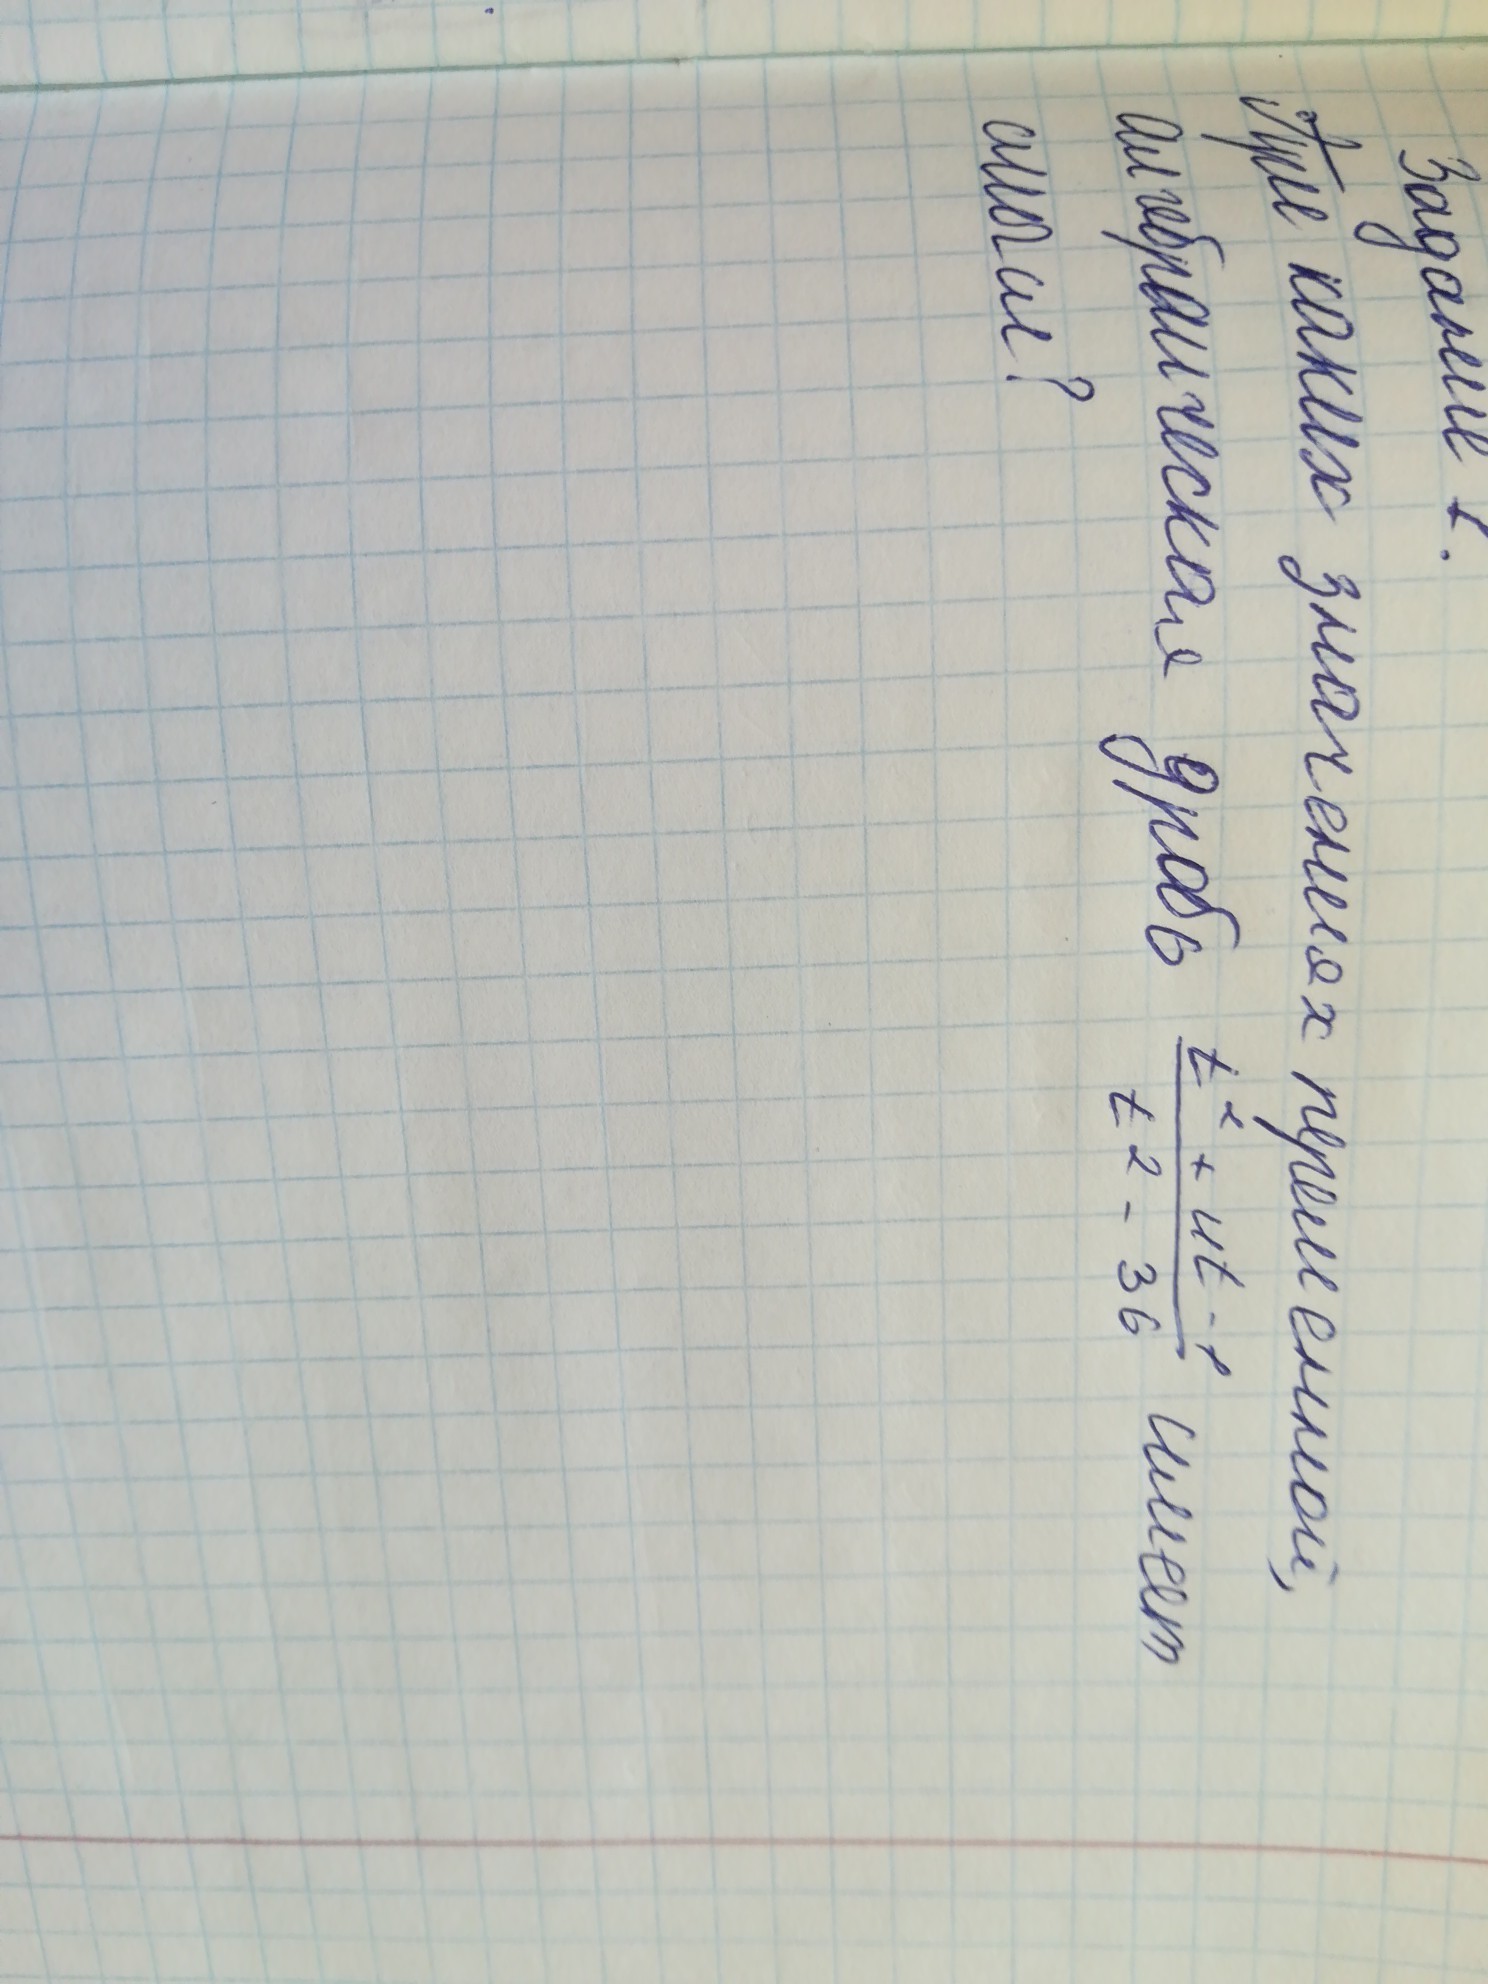 Задание 1.
При каких значениях переменной,
алгебраическая дробь \frac{t^2 + 4t - 1}{t^2 - 36} имеет
смысл?